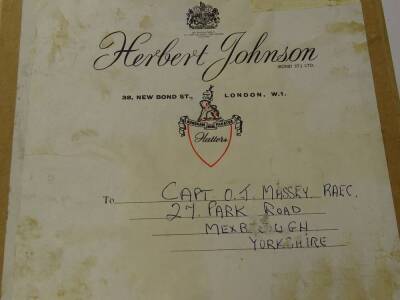 Herbert Johnson
(BOND ST.) LTD.
38, NEW BOND ST., LONDON, W.1.
Hatters
To CAPT O.J. MASSEY RAEC.
27 PARK ROAD
MEXBOROUGH
YORKSHIRE